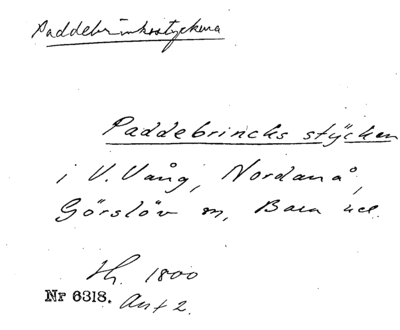 Paddebrinksstyckena
Paddebrincks stÿcken
i V. Vång, Nordanå,
Görslöv sn, Bara hd.
Sh. 1800
Nr 6318. Akt 2.